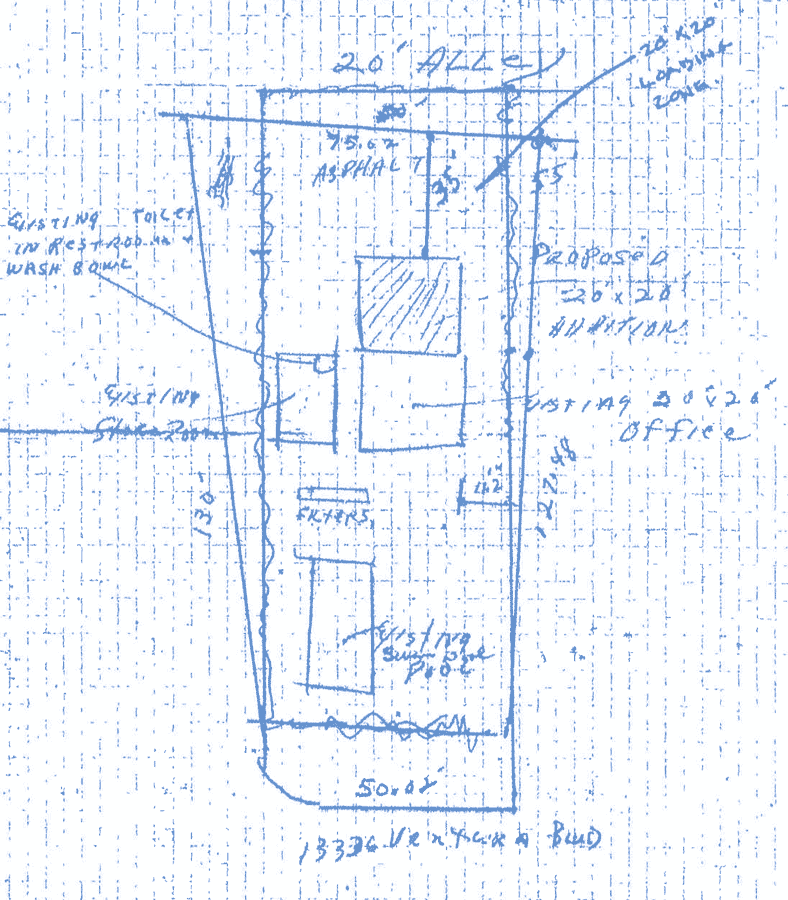 20' ALLey
20' X 20'
LOADING
ZONE.
75.02
ASPHALT
55'
EXISTING TOILET
IN RESTROOM +
WASH BOWL
PROPOSED
20' x 20'
ADDITION
EXISTING
Store Room
EXISTING 20' x 20'
OFFice
42"
130'
127.48
FILTERS.
EXISTING
POOL
50.02'
13336 Ventura BLVD